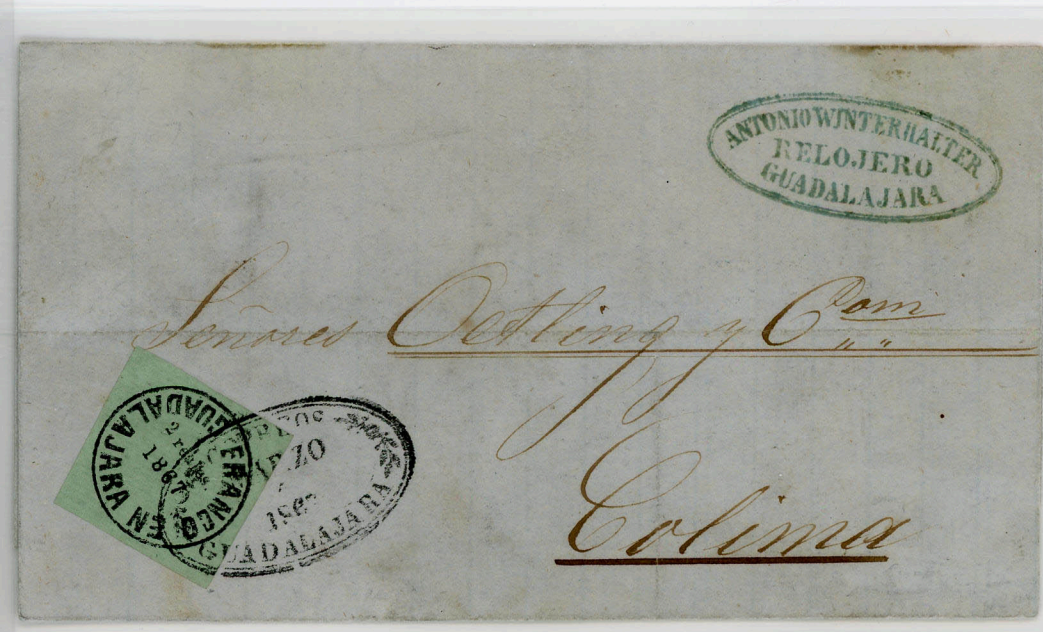 ANTONIO WINTERHALTER
RELOJERO
GUADALAJARA
Señores Oetling y Com
Colima
FRANCO EN GUADALAJARA
2 reales
1867
GUADALAJARA